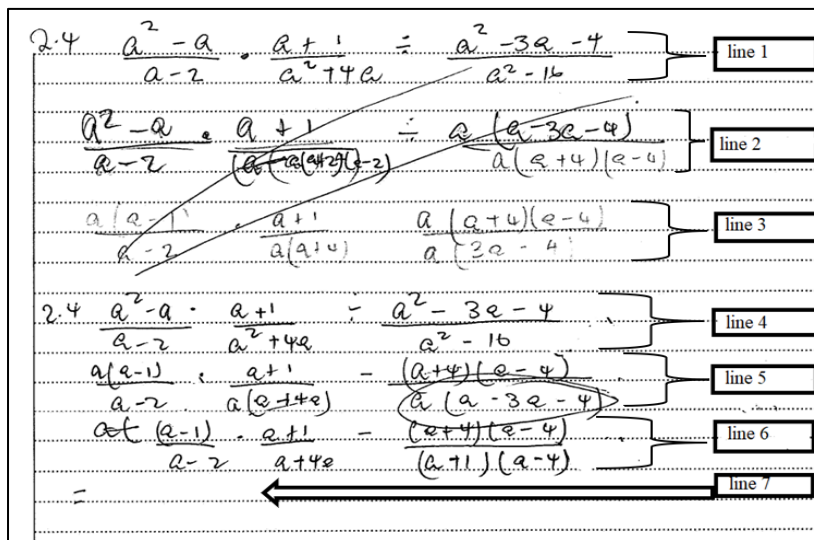 2.4 (a² - a)/(a - 2) · (a + 1)/(a² + 4a) ÷ (a² - 3a - 4)/(a² - 16) line 1
(a² - a)/(a - 2) · (a + 1)/ ÷ a(a - 3a - 4)/(a(a + 4)(a - 4)) line 2
a(a - 1)/(a - 2) · (a + 1)/(a(a + 4)) a(a + 4)(a - 4)/(a(3a - 4) line 3
2.4 (a² - a)/(a - 2) · (a + 1)/(a² + 4a) ÷ (a² - 3a - 4)/(a² - 16) line 4
a(a - 1)/(a - 2) · (a + 1)/(a(a + 4a)) - (a + 4)(a - 4)/(a(a - 3a - 4)) line 5
(a - 1)/(a - 2) · (a + 1)/(a + 4a) - (a + 4)(a - 4)/((a + 1)(a - 4)) line 6
= line 7